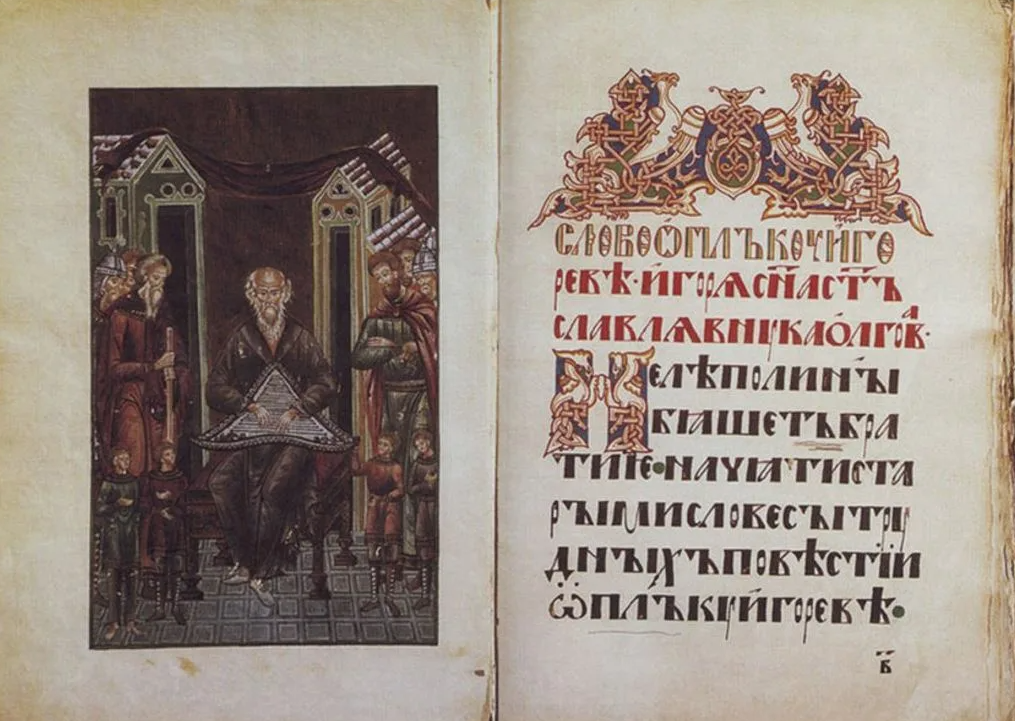 СЛОВОѠПЛЪКОУИГО
РЕВѢ·ИГОРѦСН҃АСТ҃Ъ
СЛАВЛѦВНУКАОЛГОВА·
НЕЛѢПОЛИНЪІ
БꙖШЕТЪБРА
ТИЇЕ·НАЧꙖТИСТА
РЪІМИСЛОВЕСЪІТРУ
ДНЪІХЪПОВѢСТЇИ
ѠПЛЪКУИГОРЕВѢ·
В҃